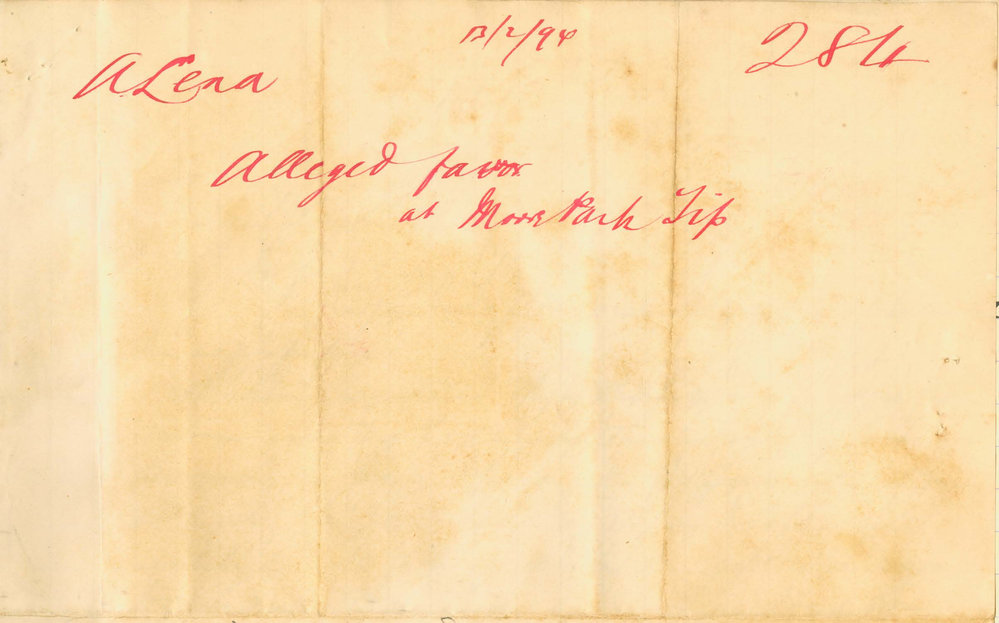 13/2/94
284
A Lena
Alleged favor
at Moore Park Tip